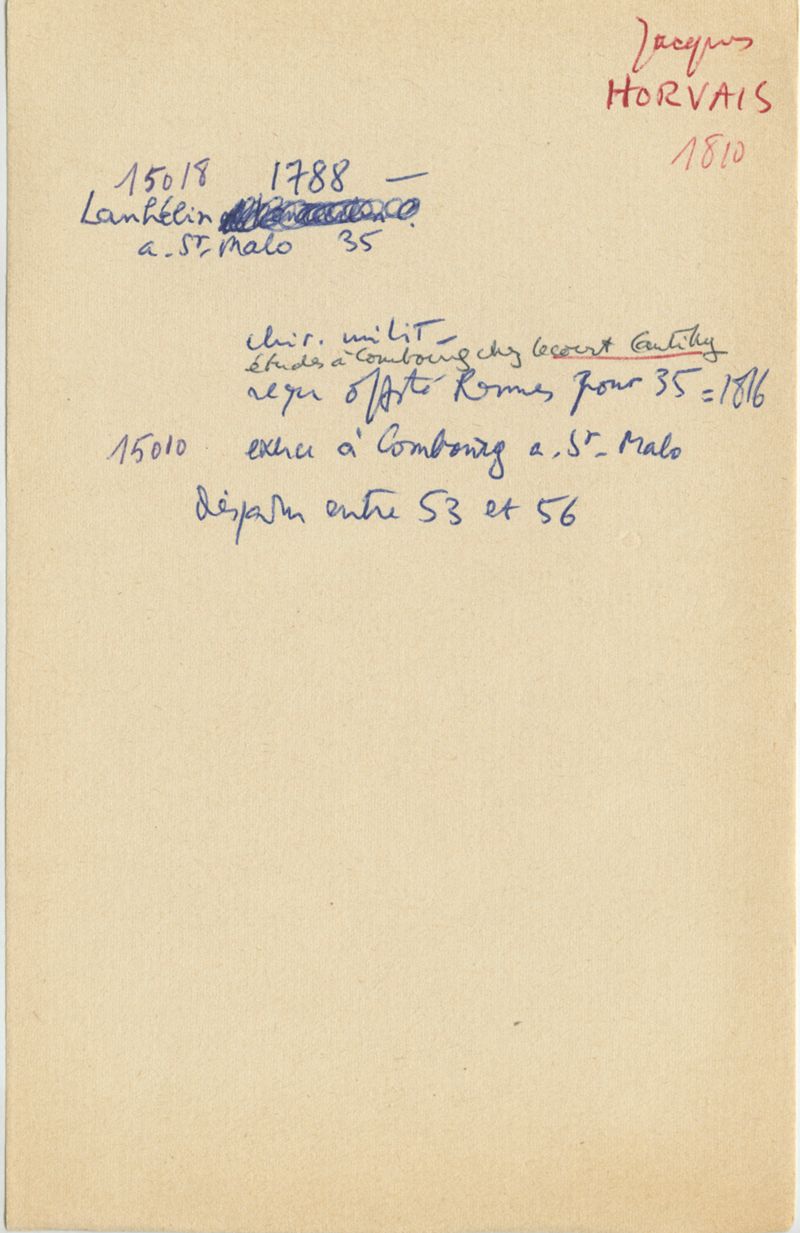 Jacques
HORVAIS
1810
15018 1788 —
Lanhélin
a. St-Malo 35
chir. milit -
études à Combourg chez Lecourt
reçu off sté Rennes pour 35 = 1816
15010 exerce à Combourg a. St-Malo
Disparu entre 53 et 56